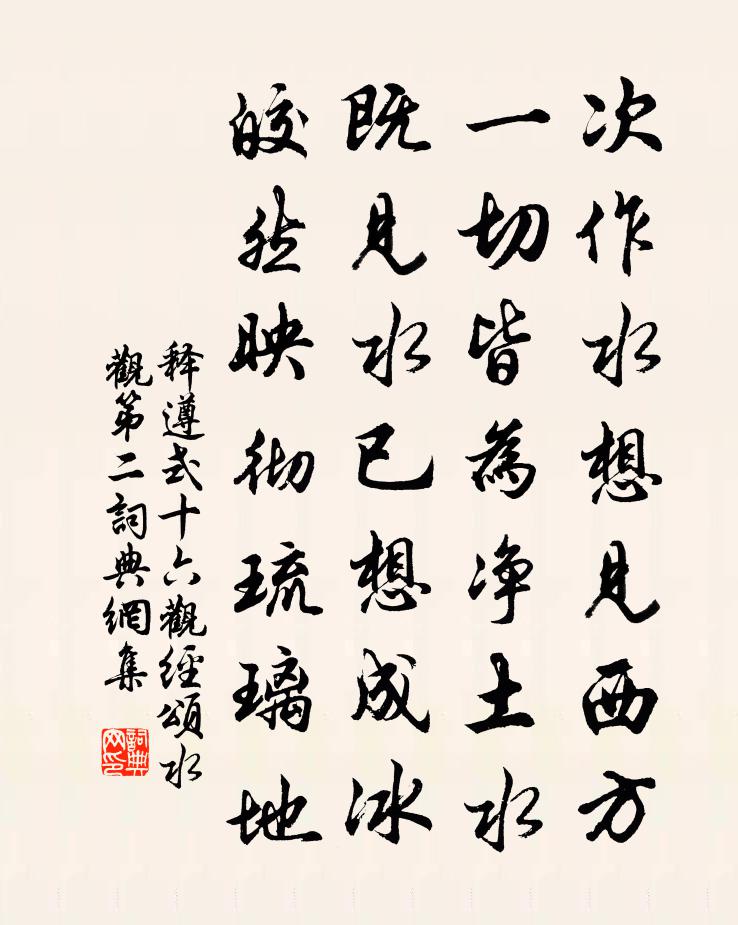 次作水想見西方
一切皆為净土水
既見水已想成冰
皎然映彻琉璃地
释遵式十六觀經頌水
觀第二詞典網集
詞典网印